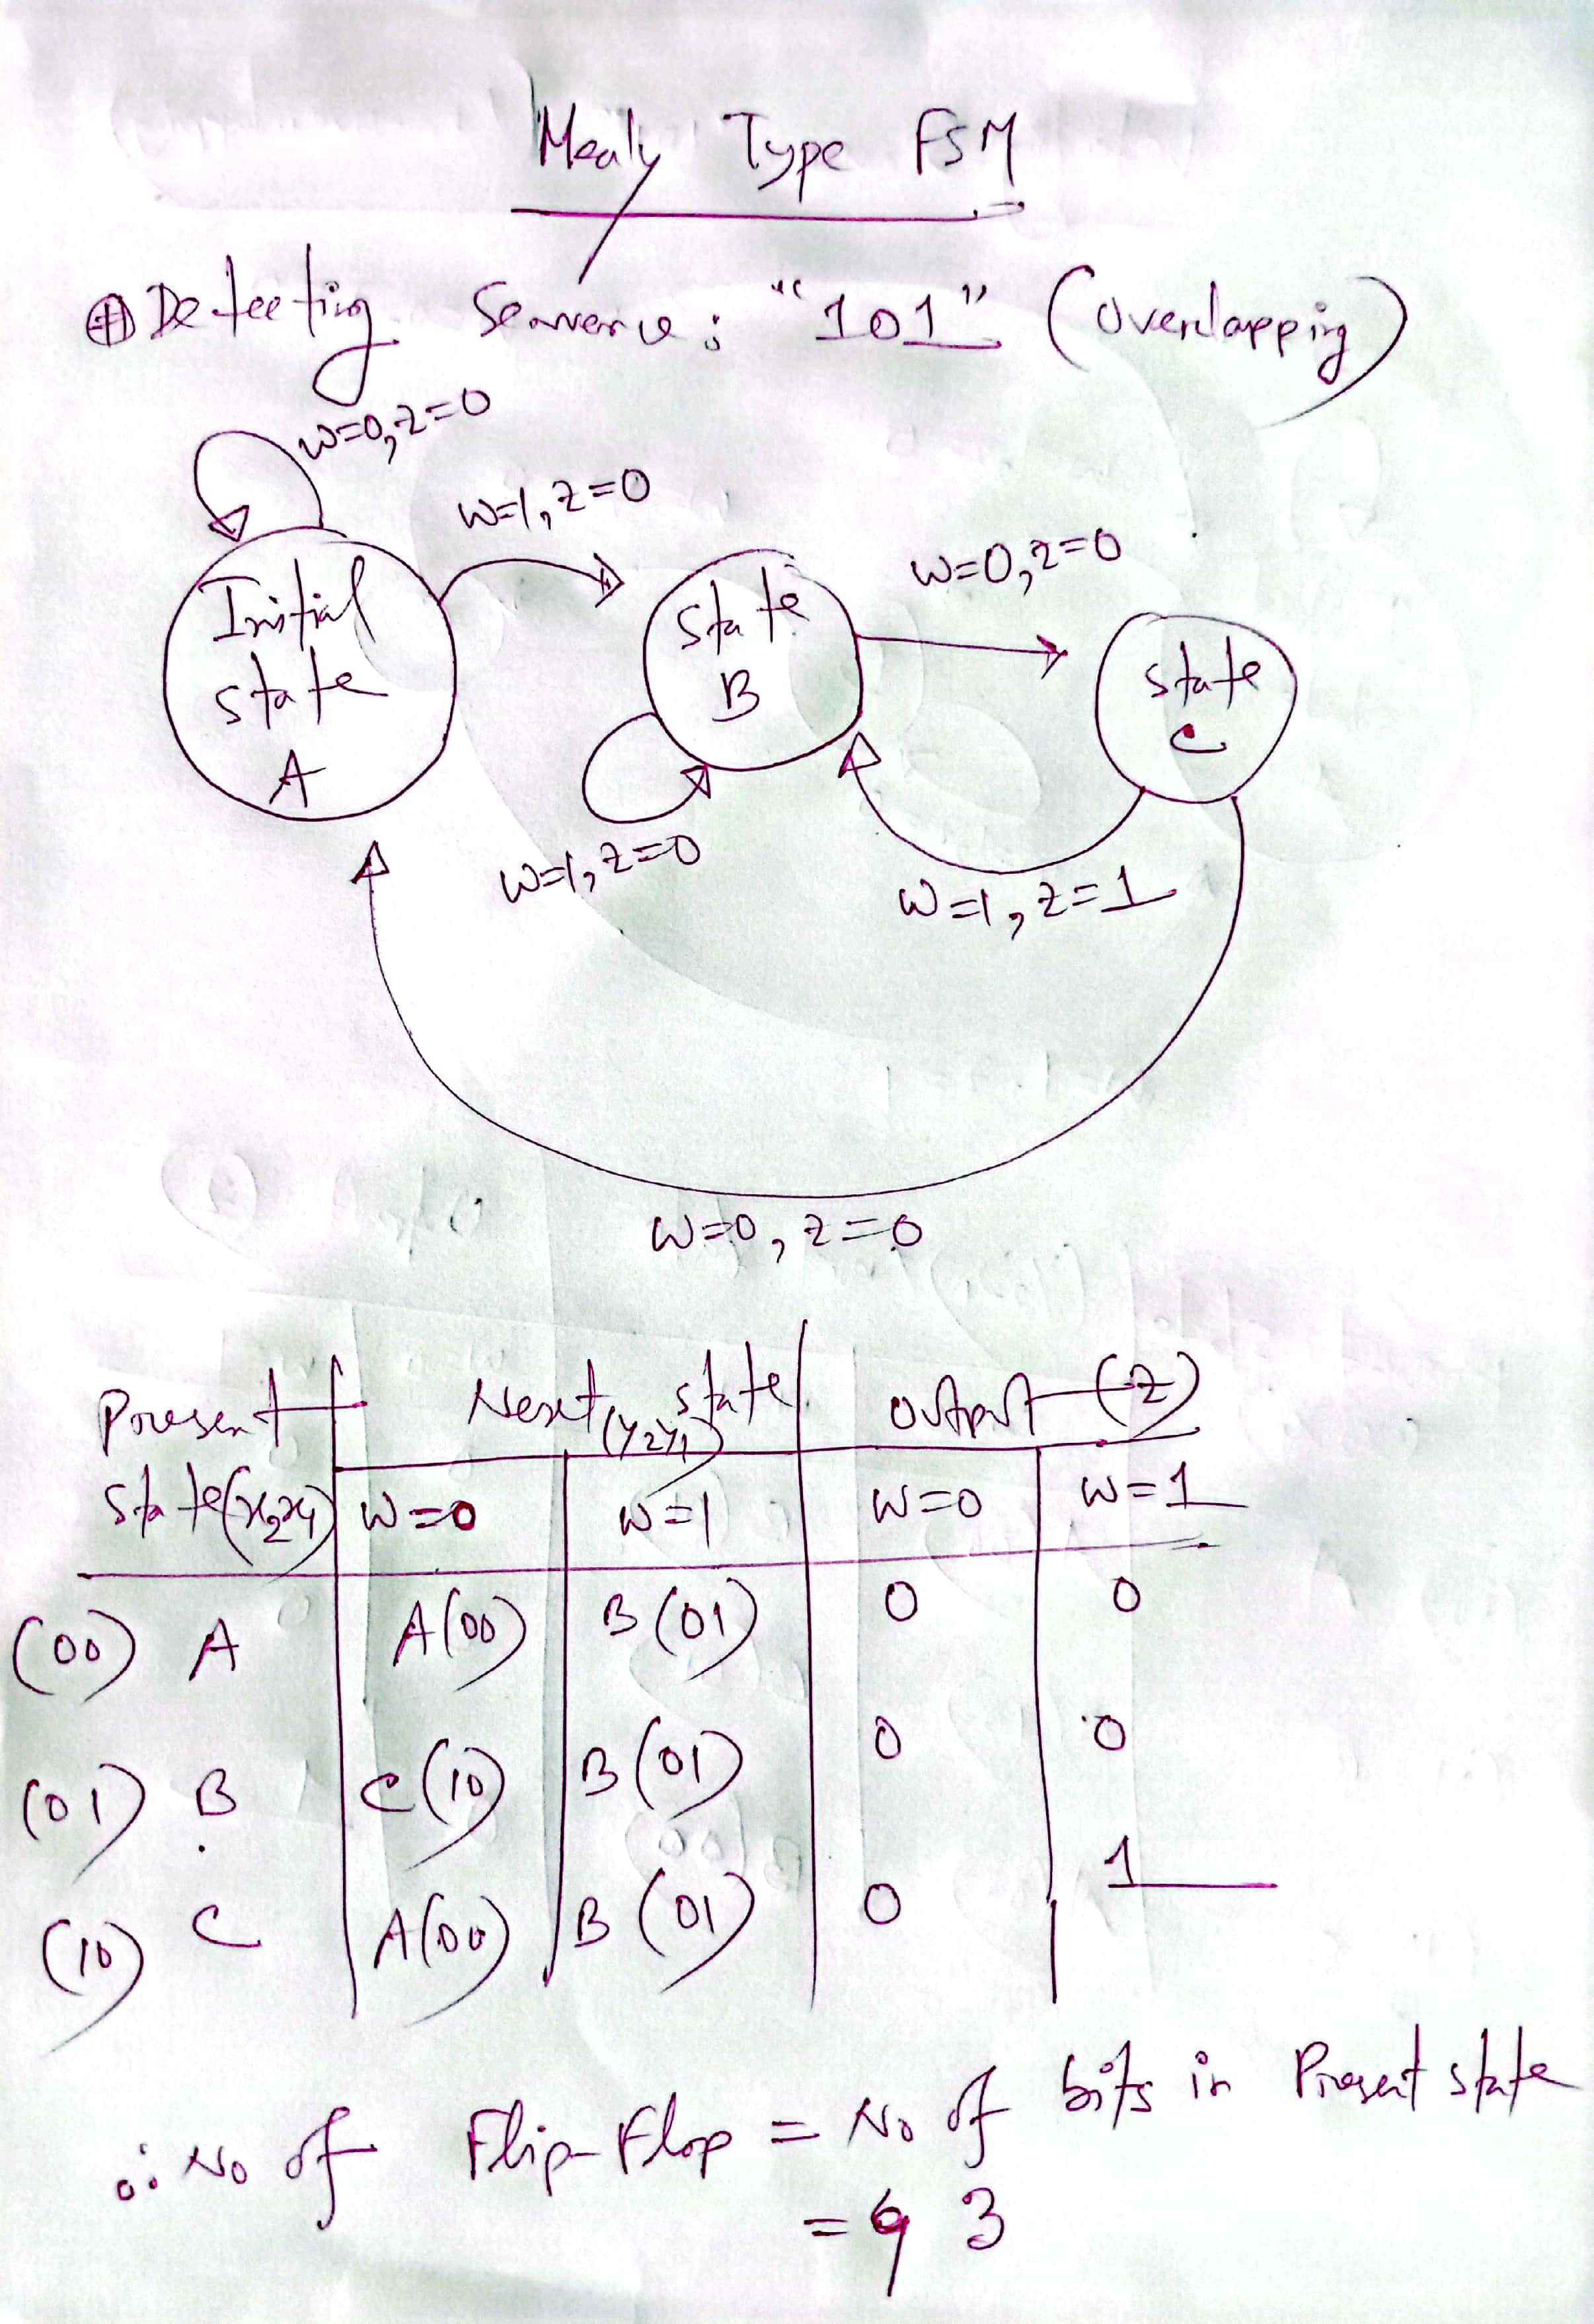 Mealy Type FSM
⊕ Detecting Sequence: "101" (Overlapping)
w=0, z=0
w=1, z=0
w=0, z=0
Initial
state
A
State
B
state
C
w=1, z=0
w=1, z=1
w=0, z=0
Present Next state Output (z)
(y2y1)
state(x2x1) w=0 w=1 w=0 w=1
(00) A A(00) B(01) 0 0
(01) B C(10) B(01) 0 0
(10) C A(00) B(01) 0 1
∴ No of Flip-Flop = No of bits in Present state
= 3